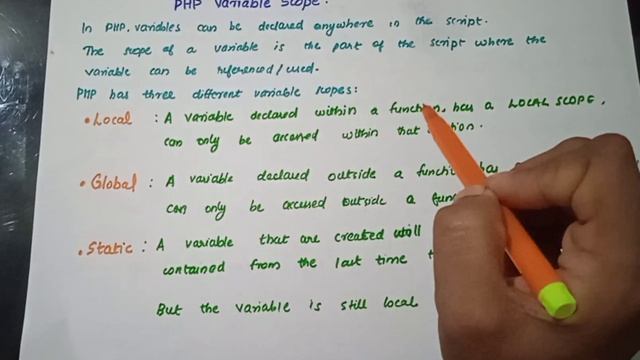 PHP Variable Scope.
In PHP, variables can be declared anywhere in the script.
The scope of a variable is the part of the script where the
variable can be referenced/used.
PHP has three different variable scopes:
• Local : A variable declared within a function, has a LOCAL SCOPE,
can only be accessed within that
• Global : A variable declared outside a has
can only be accused outside a
• Static : A variable that are created
contained from the last time
But the variable is still local